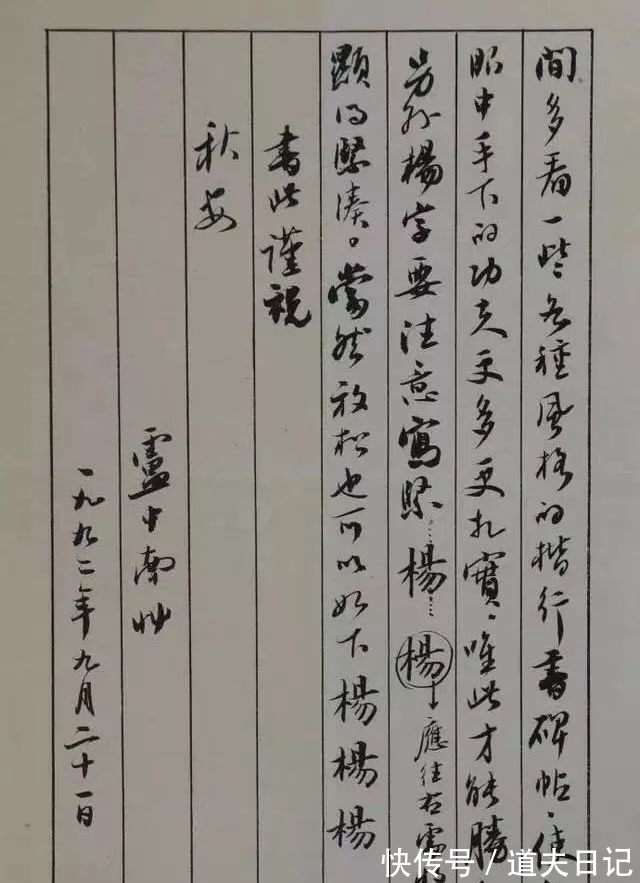 間多看一些各種風格的楷行書碑帖，使
眼中手下的功夫更多更扎實，唯此才能勝
另外楊字要注意寫緊……楊……楊 應往右
顯得緊湊。當然放松也可以如下楊楊楊
書此謹祝
秋安
盧中南
一九九二年九月二十一日
快传号／道夫日记